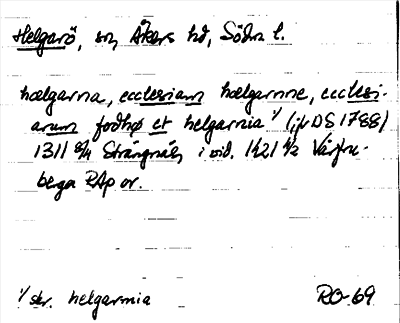 Helgarö, sn, Åkers hd, Södm l.
hælgarna, ecclesiam hælgarnne, ecclesi-
arum fodhø et helgarnia 1/ (jfr DS 1788)
1311 8/4 Strängnäs, i vid. 1421 Vårfru-
berga RAp or.
1/ skr. helgarmia
RO-69